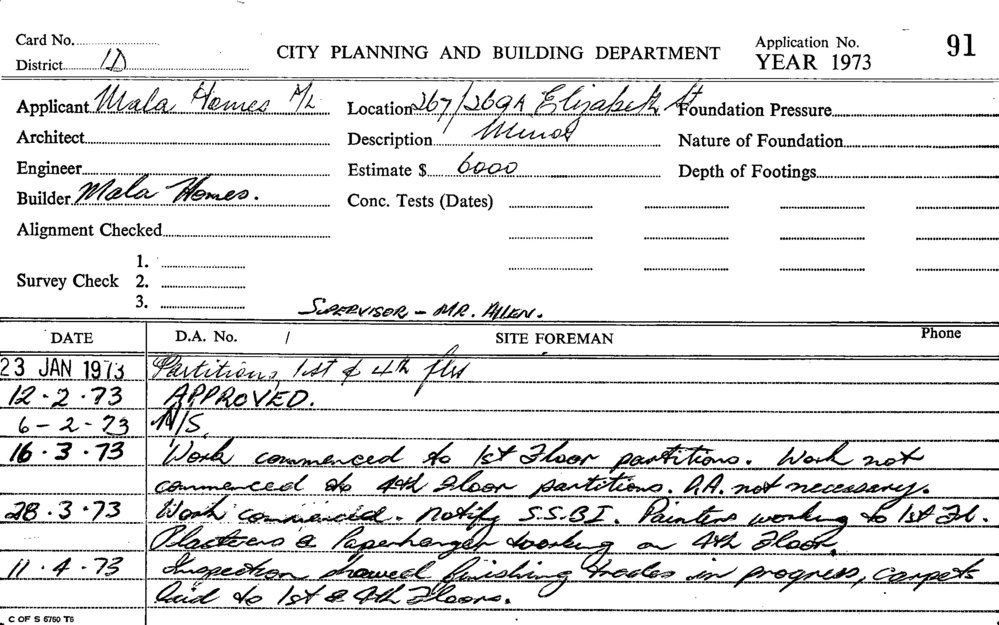 Card No.
District 1D
CITY PLANNING AND BUILDING DEPARTMENT
Application No. 91
YEAR 1973
Applicant Mala Homes P/L Location 267/269A Elizabeth St Foundation Pressure
Architect Description Minor Nature of Foundation
Engineer Estimate $ 6000 Depth of Footings
Builder Mala Homes. Conc. Tests (Dates)
Alignment Checked
1.
Survey Check 2.
3.
SUPERVISOR - MR. ALLEN.
DATE D.A. No. / SITE FOREMAN Phone
23 JAN 1973 Partitions, 1st & 4th flrs
12.2.73 APPROVED.
6-2-73 N/S
16.3.73 Work commenced to 1st Floor partitions. Work not
commenced to 4th Floor partitions. D.A. not necessary.
28.3.73 Work commenced. Notify S.S.B.I. Painters working to 1st Fl.
Plasterers & Paperhanger working on 4th Floor.
11.4.73 Inspection showed finishing trades in progress, carpets
laid to 1st & 4th Floors.
C OF S 6760 T5